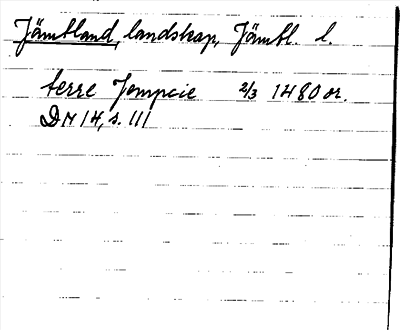 Jämtland, landskap, Jämtl. l.
terre Jempcie 2/3 1480 or.
DN 14, s. 111